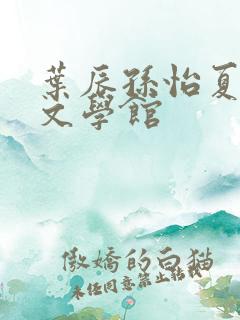 葉辰孫怡夏
文學館
傲嬌的白猫
未任同意禁止轉載